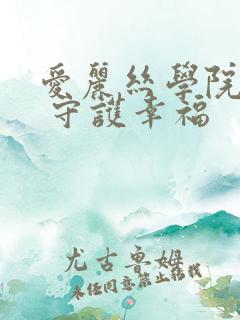 愛麗絲學院
守護幸福
尤古魯姆
未经同意禁止轉載